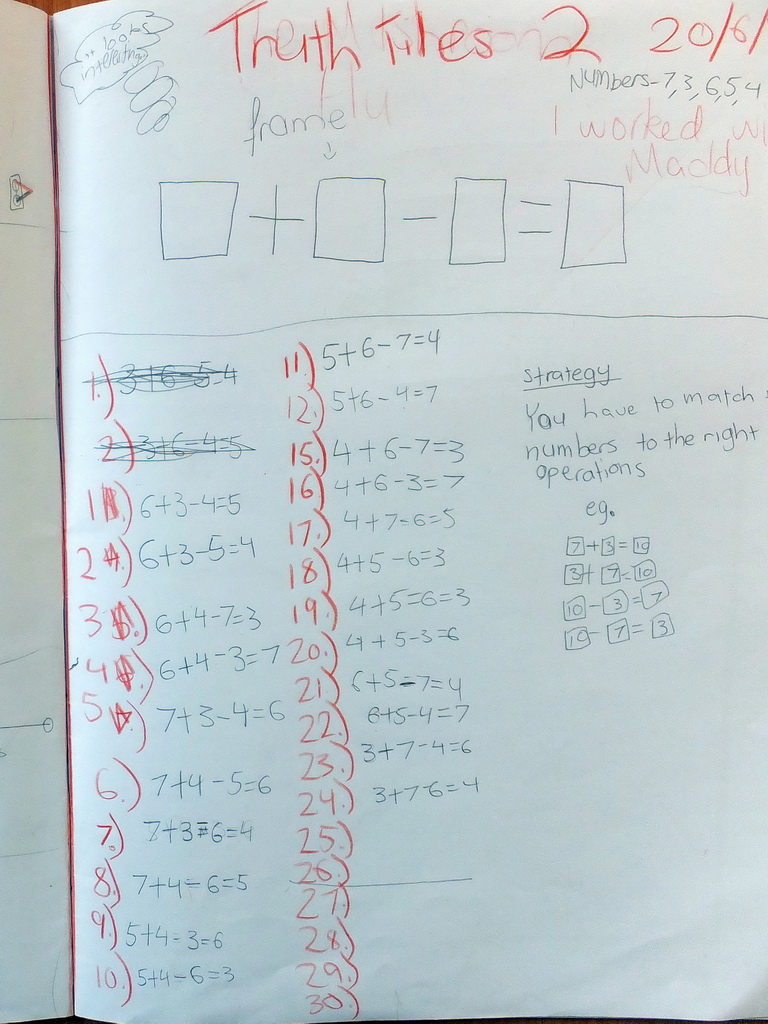 "looks
interesting"
Truth Tiles 2 20/6/
Numbers-7,3,6,5,4
frame
I worked wi
Maddy
+ - =
1.) 3+6-5=4
2.) 3+6-4=5
1.) 6+3-4=5
2.) 6+3-5=4
3.) 6+4-7=3
4.) 6+4-3=7
5.) 7+3-4=6
6.) 7+4-5=6
7.) 7+3-6=4
8.) 7+4-6=5
9.) 5+4-3=6
10.) 5+4-6=3
11.) 5+6-7=4
12.) 5+6-4=7
15.) 4+6-7=3
16.) 4+6-3=7
17.) 4+7-6=5
18.) 4+5-6=3
19.) 4+5=6=3
20.) 4+5-3=6
21.) 6+5-7=4
22.) 6+5-4=7
23.) 3+7-4=6
24.) 3+7-6=4
25.)
26.)
27.)
28.)
29.)
30.)
strategy
You have to match
numbers to the right
operations
eg.
7+3=10
3+7=10
10-3=7
10-7=3